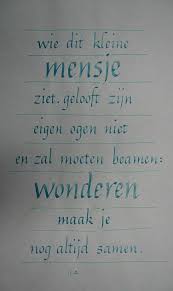 wie dit kleine
mensje
ziet, gelooft zijn
eigen ogen niet
en zal moeten beamen:
wonderen
maak je
nog altijd samen.